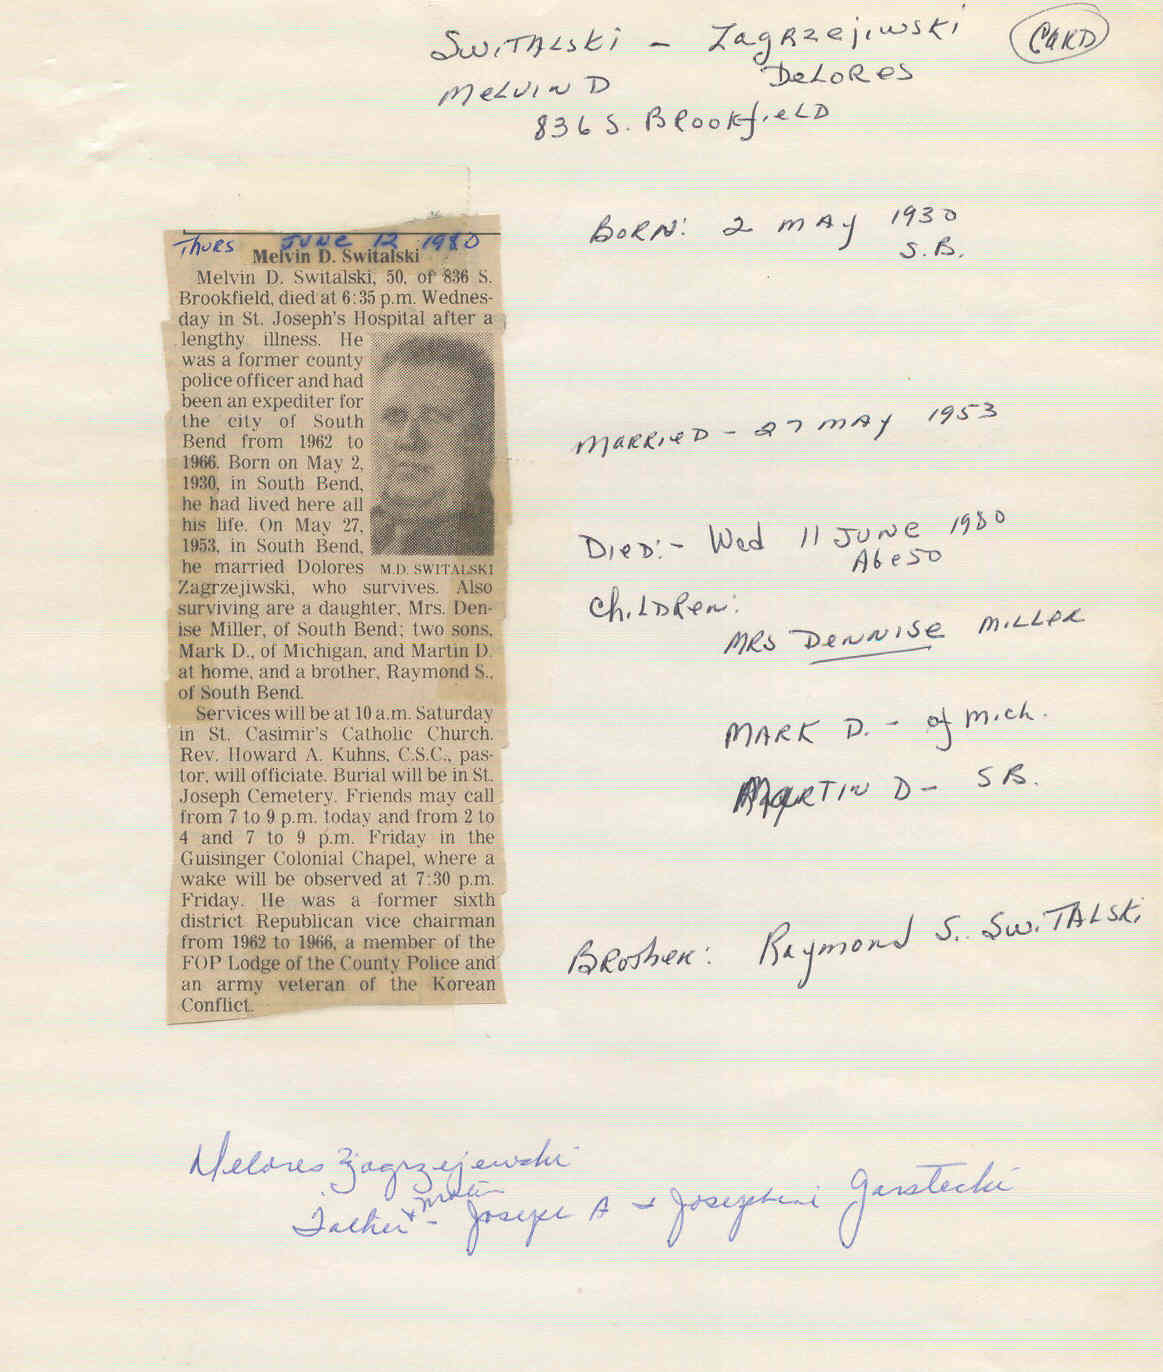 SWITALSKI - ZagRzejiwski
CARD
MeLVIN D DeLORes
836 S. BRookfieLD
Thurs JUNE 12 1980
Melvin D. Switalski
Melvin D. Switalski, 50, of 836 S.
Brookfield, died at 6:35 p.m. Wednes-
day in St. Joseph's Hospital after a
lengthy illness. He
was a former county
police officer and had
been an expediter for
the city of South
Bend from 1962 to
1966. Born on May 2,
1930, in South Bend,
he had lived here all
his life. On May 27,
1953, in South Bend,
he married Dolores
M.D. SWITALSKI
Zagrzejiwski, who survives. Also
surviving are a daughter, Mrs. Den-
ise Miller, of South Bend; two sons,
Mark D., of Michigan, and Martin D.
at home, and a brother, Raymond S.,
of South Bend.
Services will be at 10 a.m. Saturday
in St. Casimir's Catholic Church.
Rev. Howard A. Kuhns, C.S.C., pas-
tor, will officiate. Burial will be in St.
Joseph Cemetery. Friends may call
from 7 to 9 p.m. today and from 2 to
4 and 7 to 9 p.m. Friday in the
Guisinger Colonial Chapel, where a
wake will be observed at 7:30 p.m.
Friday. He was a former sixth
district Republican vice chairman
from 1962 to 1966, a member of the
FOP Lodge of the County Police and
an army veteran of the Korean
Conflict.
BORN: 2 MAY 1930
S.B.
MARRIED - 27 MAY 1953
DIED:- Wed 11 JUNE 1980
AGe 50
ChiLDRen:
MRS DENNISE MILLER
MARK D. - of Mich.
MARTIN D - S B.
BROtheR: Raymond S. SwiTALSki
Delores Zagrzejewski
Father & Mother - Joseph A + Josephine Garstecki